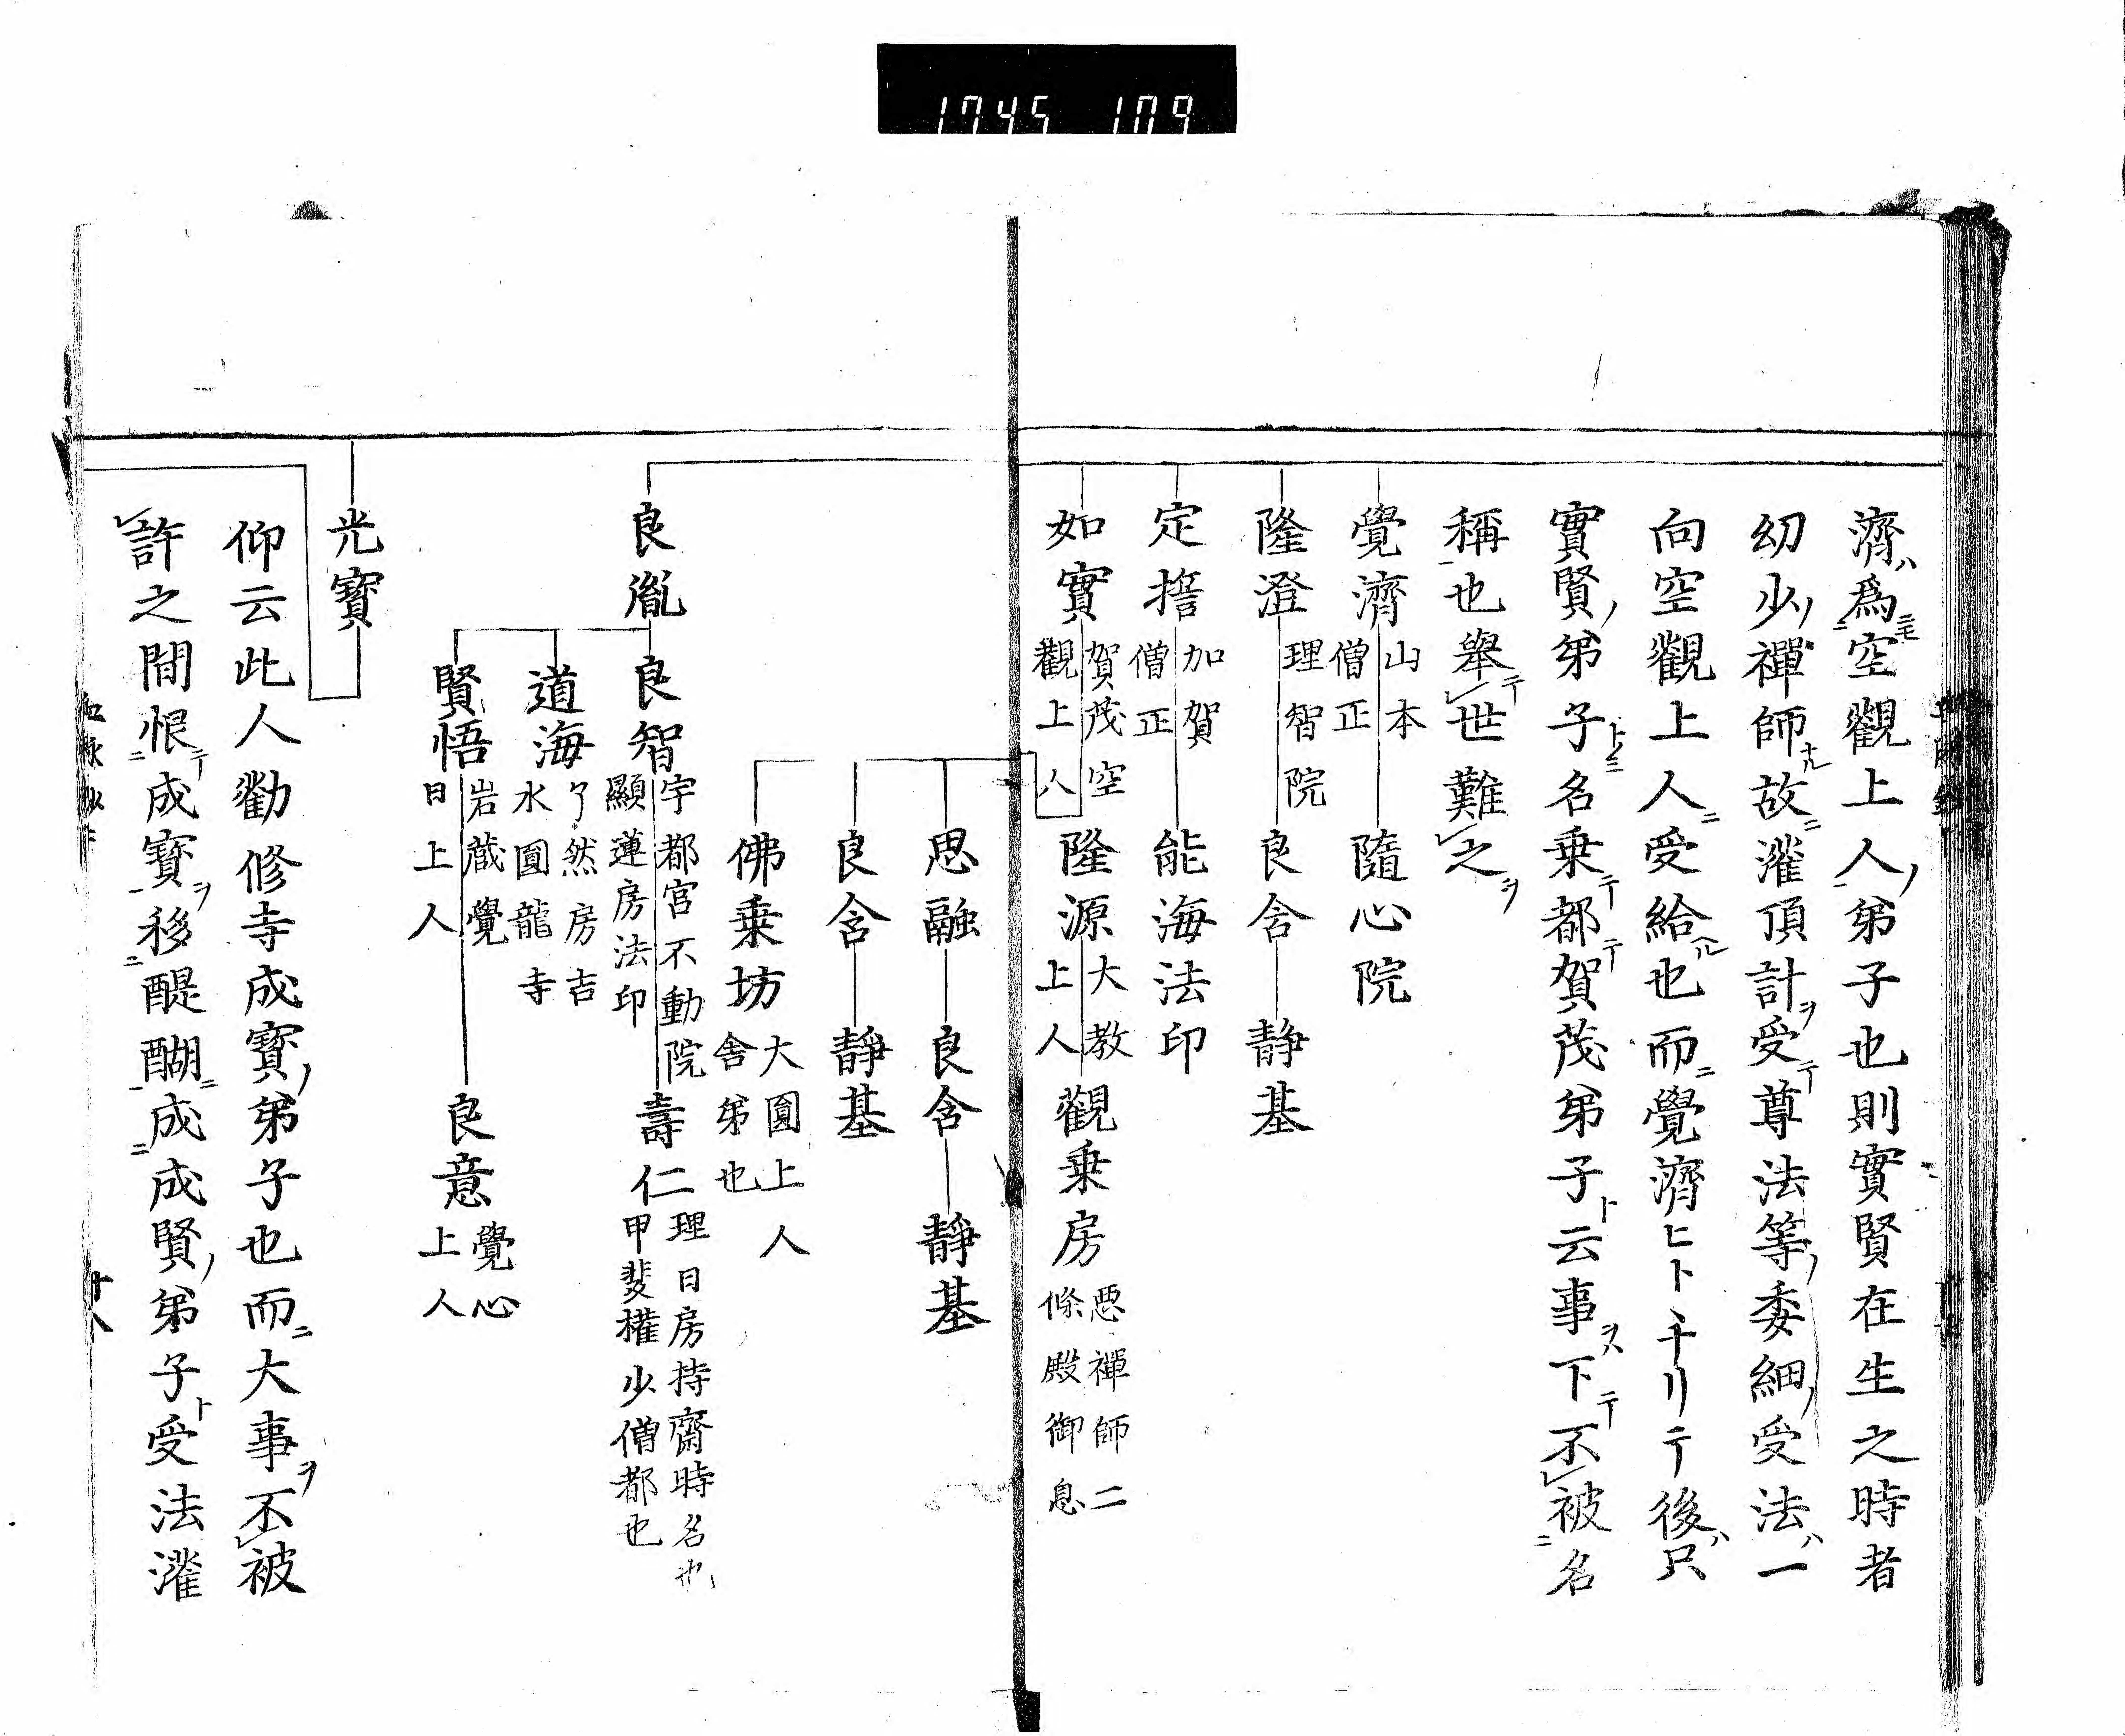 1745 109
濟ハ爲ニモ空觀上人ノ弟子也則實賢在生之時者
幼少ノ禪師ナル故ニ灌頂計ヲ受テ尊法等ノ委細ノ受法ハ一
向空觀上人ニ受給ヘル也而ニ覺濟ヒトヽナリテ後ハ只
實賢ノ弟子ト名乗テ都テ賀茂弟子ト云事ヲハ下テ不被名
稱也舉テ世難之ヲ
覺濟
山本
僧正
隨心院
隆澄
理智院
良含
靜基
定撸
加賀
僧正
能海法印
如實
賀茂空
觀上人
隆源
大教
上人
觀乗房
悪禪師二
條殿御息
思融
良含
靜基
良含
靜基
佛乗坊
大圓上人
舎弟也
良胤
良智
宇都宮不動院
顯蓮房法印
壽仁
理日房持齋時名也
甲斐權少僧都也
道海
了然房吉
水圓龍寺
賢悟
岩蔵覺
日上人
良意
覺心
上人
光寳
仰云此人勸修寺成寳ノ弟子也而ニ大事ヲ不被
許之間恨テ成寳ヲ移醍醐ニ成成賢ノ弟子ト受法灌
血脉鈔二
廿八